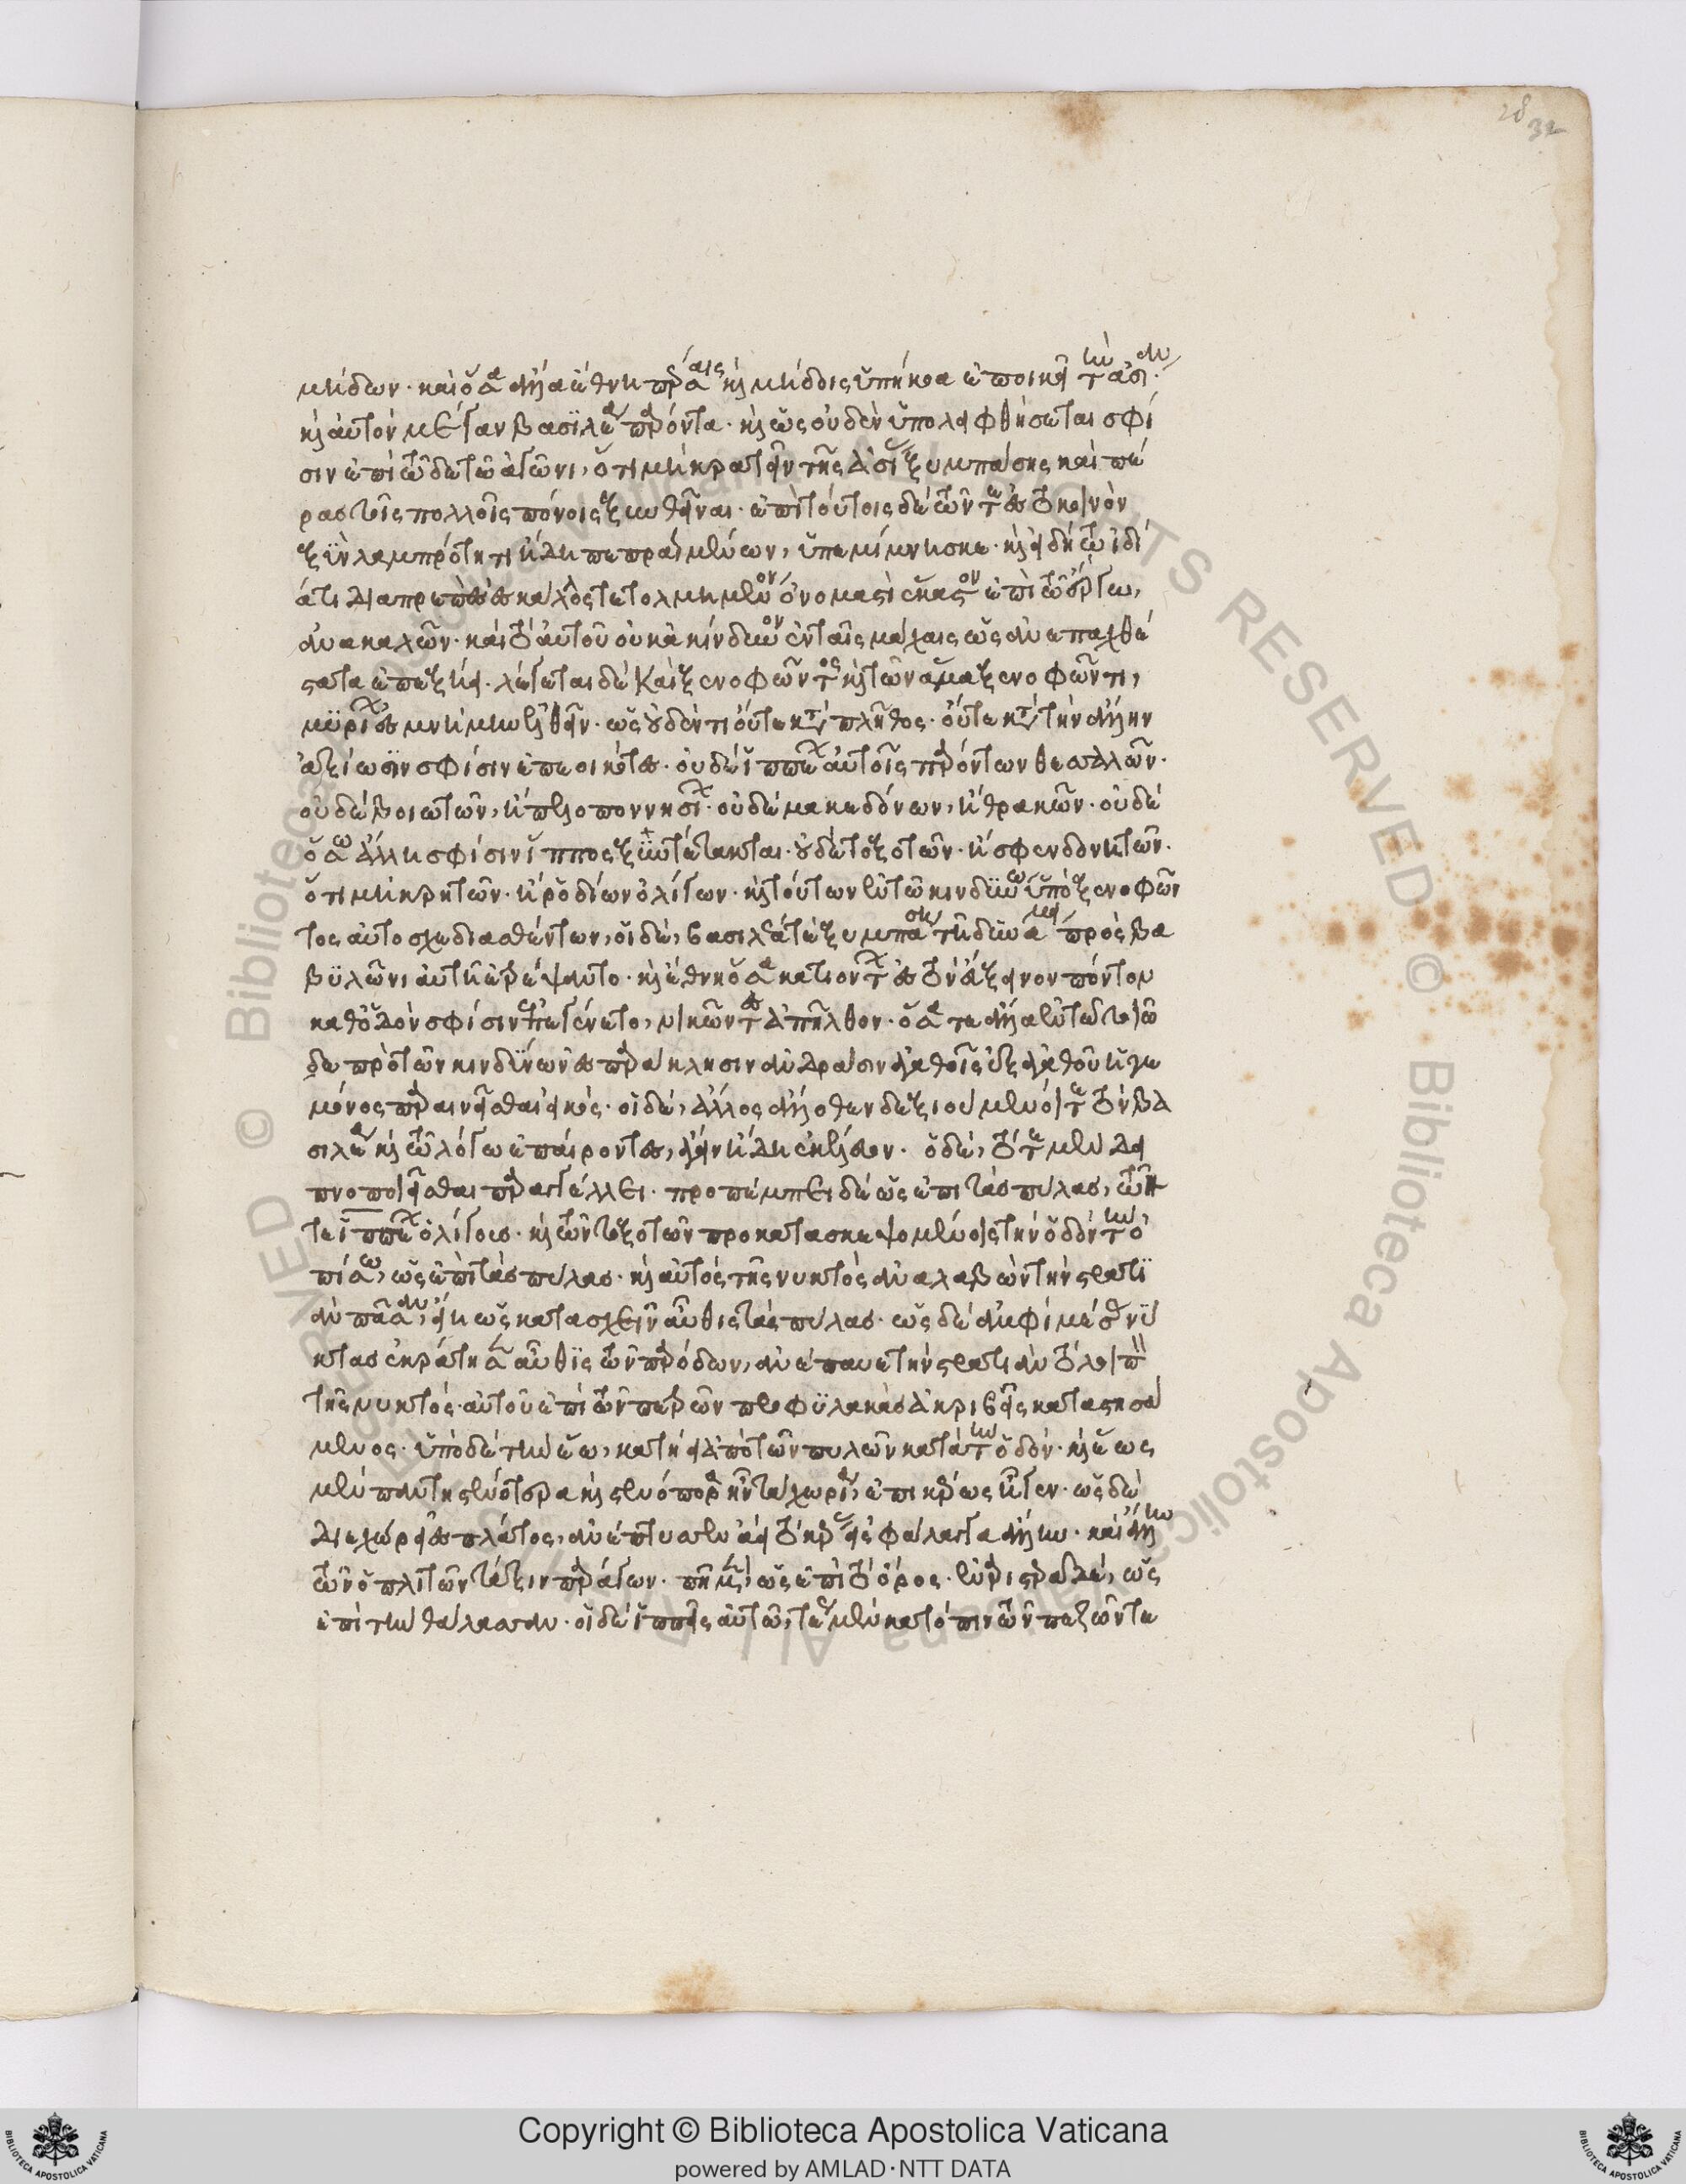 28 32
μήδων. καὶ ὅσα ἄλλα ἔθνη πέρσαις καὶ μήδοις ὑπήκοα ἐποικεῖ τὴν ἀσίαν.
καὶ αὐτὸν μέγαν βασιλέα παρόντα. καὶ ὡς οὐδὲν ὑπολειφθήσεται σφί
σιν ἐπὶ τῶδε τῶ ἀγῶνι, ὅτι μὴ κρατεῖν τῆς ἀσίας ξυμπάσης καὶ πέ
ρας τοῖς πολλοῖς πόνοις ἐπιθεῖναι. ἐπὶ τούτοις δὲ τῶν τε ἐς τὸ κοινὸν
ξὺν λαμπρότητι ἤδη πεπραγμένων, ὑπεμίμνησκε. καὶ εἰ δή τω ἰδί
ᾳ τι διαπρεπὲς ἐς κάλλος τετολμημένον ὀνομαστὶ ἕκαστον ἐπὶ τῶ ἔργω,
ἀνακαλῶν. καὶ τὸ αὐτοῦ οὐκ ἀκίνδυνον ἐν ταῖς μάχαις ὡς ἀνεπαχθέ
στατα ἐπεξήει. λέγεται δὲ καὶ ξενοφῶντος καὶ τῶν ἅμα ξενοφῶντι,
μυρίων ἐς μνήμην ἐλθεῖν. ὡς οὐδέν τι οὔτε κατὰ πλῆθος. οὔτε κατὰ τὴν ἄλλην
ἀξίωσιν σφίσιν ἐπεοικότες. οὐδὲ ἱππέων αὐτοῖς παρόντων θεσσαλῶν.
οὐδὲ βοιωτῶν, ἢ πελοποννησίων. οὐδὲ μακεδόνων, ἢ θρακῶν. οὐδὲ
ὅση ἄλλη σφίσιν ἵππος ξυντέτακται. οὐδὲ τοξοτῶν. ἢ σφενδονητῶν.
ὅτι μὴ κρητῶν. ἢ ῥοδίων ὀλίγων. καὶ τούτων ἐν τῶ κινδύνω ὑπὸ ξενοφῶν
τος αὐτοσχεδιασθέντων, οἱ δὲ, βασιλέα τε ξυμπάση τῆ δυνάμει πρὸς βα
βυλῶνι αὐτῆ ἐτρέψαντο. καὶ ἔθνη ὅσα κατιόντων ἐς τὸν εὔξεινον πόντον
καθ' ὁδὸν σφίσιν ἐπεγένετο, νικῶντες ἀπῆλθον. ὅσα τε ἄλλα ἐν τῶ τοιῶ
δε πρὸ τῶν κινδύνων ἐς παράκλησιν ἀνδράσιν ἀγαθοῖς ἐξ ἀγαθοῦ ἡγε
μόνος παραινεῖσθαι εἰκός. οἱ δὲ, ἄλλος ἄλλοθεν δεξιούμενοί τε τὸν βα
σιλέα καὶ τῶ λόγω ἐπαίροντες, ἄγειν ἤδη ἐκέλευον. ὁ δὲ, τότε μὲν δει
πνοποιεῖσθαι παραγγέλλει. προπέμπει δὲ ὡς ἐπὶ τὰς πύλας, τῶν
τε ἱππέων ὀλίγους. καὶ τῶν τοξοτῶν προκατασκεψομένους τὴν ὁδὸν τὴν ὀ
πίσω, ὡς ἐπὶ τὰς πύλας. καὶ αὐτὸς τῆς νυκτὸς ἀναλαβὼν τὴν στρατι
ὰν πᾶσαν, ἤει ὡς κατασχεῖν αὖθις τὰς πύλας. ὡς δὲ ἀμφὶ μέσας νύ
κτας ἐκράτησεν αὖθις τῶν παρόδων, ἀνέπαυε τὴν στρατιὰν τὸ λοιπὸν
τῆς νυκτός. αὐτοῦ ἐπὶ τῶν πετρῶν προφυλακὰς ἀκριβεῖς καταστησά
μενος. ὑπὸ δὲ τὴν ἕω, κατήει ἀπὸ τῶν πυλῶν κατὰ τὴν ὁδόν. καὶ ἕως
μὲν πάντη καὶ στενόπορα ἦν τὰ χωρία, ἐπὶ κέρως ἦγεν. ὡς δὲ
διεχώρει ἐς πλάτος, ἀνέπτυσσεν ἀεὶ τὸ κέρας ἐς φάλαγγα ἄλλην. καὶ ἄλλην
τῶν ὁπλιτῶν τάξιν παράγων. τῆ μὲν, ὡς ἐπὶ τὸ ὄρος. ἐν ἀριστερᾶ δὲ, ὡς
ἐπὶ τὴν θάλασσαν. οἱ δὲ ἱππεῖς αὐτῶ, τέως μὲν κατόπιν τῶν πεζῶν τε
© Biblioteca Apostolica Vaticana ALL RIGHTS RESERVED © Biblioteca Apostolica Vaticana ALL RIGHTS RESERVED
BIBLIOTECA APOSTOLICA VATICANA
Copyright © Biblioteca Apostolica Vaticana
powered by AMLAD·NTT DATA
BIBLIOTECA APOSTOLICA VATICANA